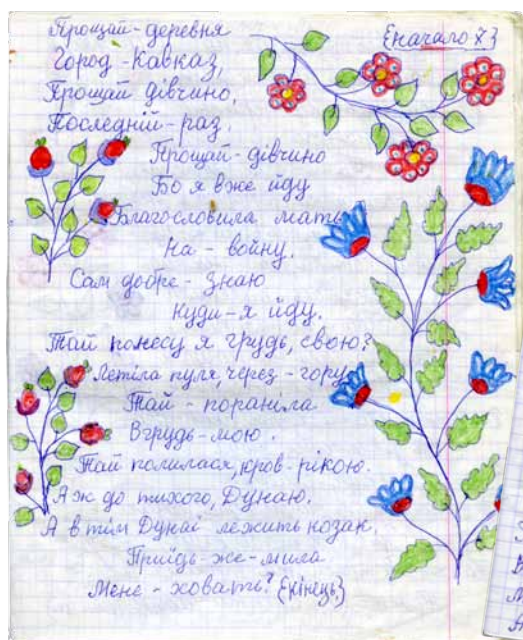 {начало 7}
Прощай-деревня
Город-Кавказ,
Прощай дівчино,
Последній-раз.
Прощай-дівчино
Бо я вже йду
Благословила мать
На-войну.
Сам добре-знаю
Куди-я йду.
Тай понесу я грудь, свою?
Летіла пуля, через-гору
Тай-пораніла
Вгрудь-мою.
Тай полилася, кров-рікою.
Аж до тихого, Дунаю.
А в тім Дунаї лежить козак.
Прийдь-же-мила
Мене-ховать? {кінець}